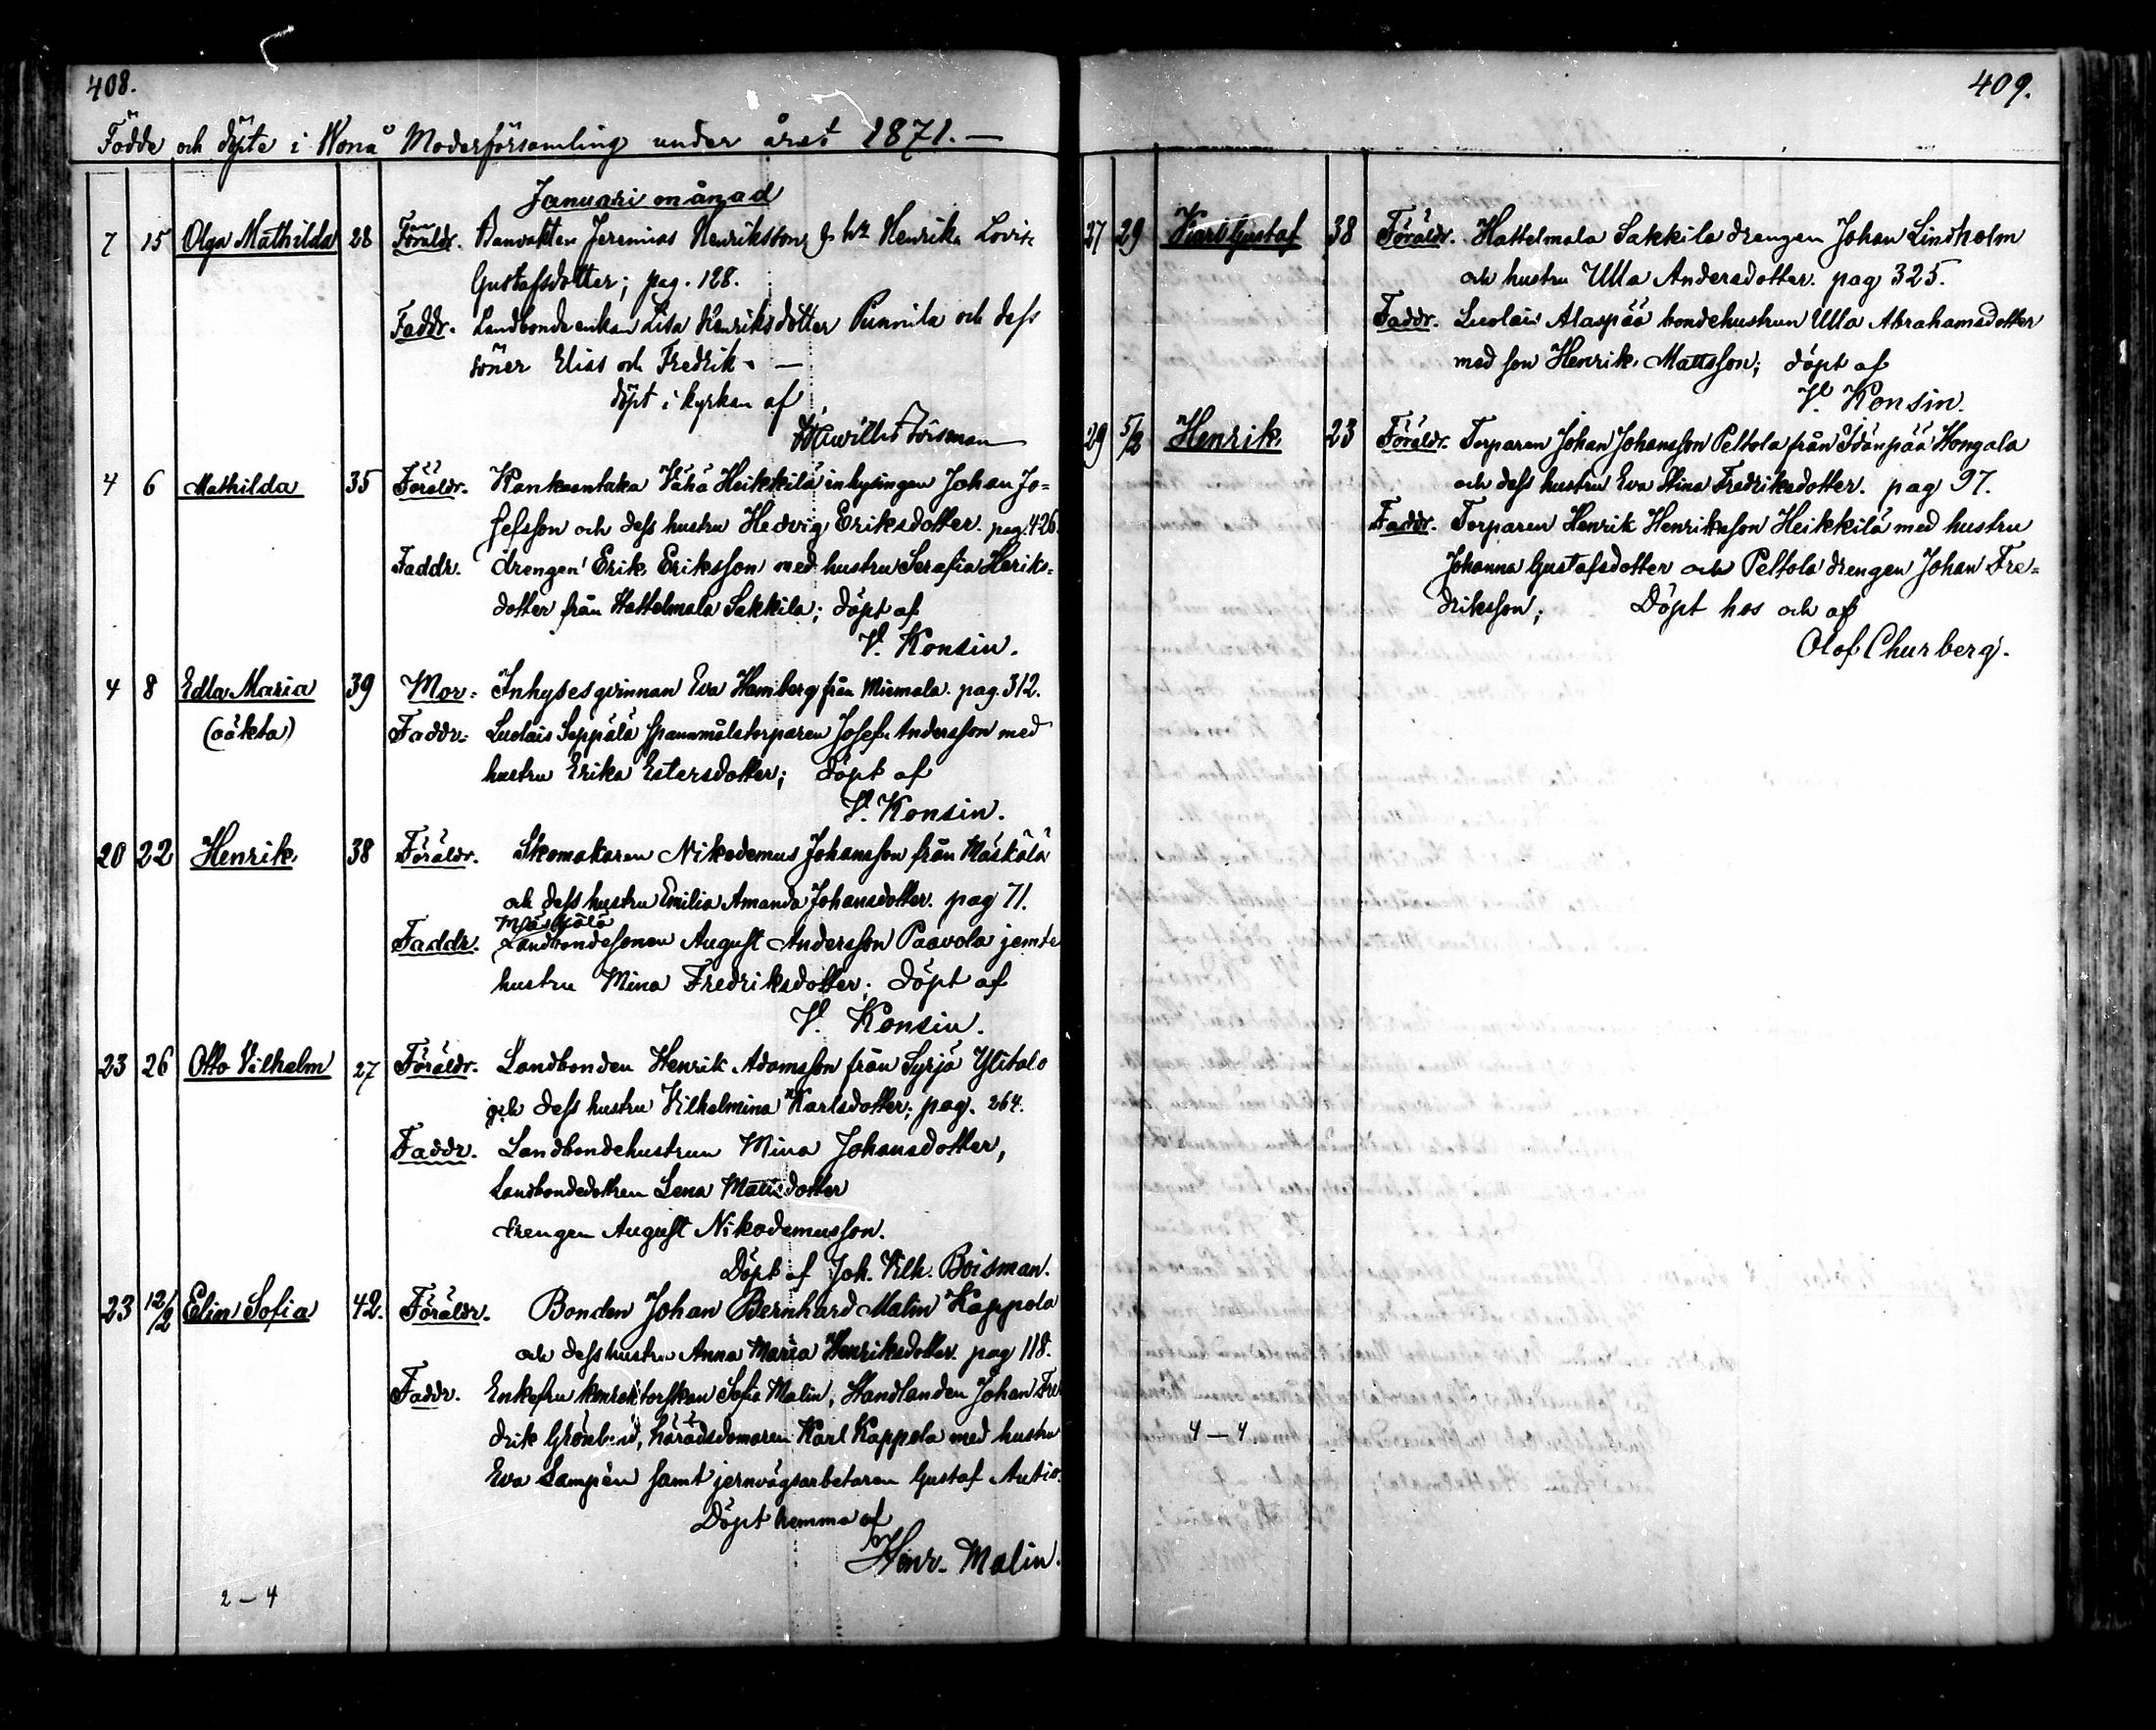 408.
Födde och döpte i Wonå Moderförsamling under året 1871. —
Januari månad
7 15 Olga Mathilda 28 Föräldr. Banvakten Jeremias Henriksson, & h. Henrika Lovisa
Gustafsdotter; pag. 128.
Faddr. Landbondeenkan Lisa Henriksdotter Punnila och dess
söner Elias och Fredrik. —
döpt i kyrkan af
4 6 Mathilda 35 Föräldr. Kankaantaka Vähä Heikkilä inhysingen Johan Jo=
sefsson och dess hustru Hedvig Eriksdotter. pag. 426
Faddr. drengen Erik Eriksson med hustru Serafia Heriks=
dotter från Hattelmala Sakkila; döpt af
V. Konsin.
4 8 Edla Maria 39 Mor: Inhysesqvinnan Eva Hamberg från Miemala. pag. 312.
(oäkta) Faddr: Luolais Seppälä spannmålstorparen Josef Andersson med
hustru Erika Estersdotter; döpt af
V. Konsin.
20 22 Henrik 38 Föräldr. Skomakaren Nikodemus Johansson från Mäskälä
och dess hustru Emilia Amanda Johansdotter. pag 71.
Mäskälä
Faddr. Landbondesonen August Andersson Paavola jemte
hustru Mina Fredriksdotter; döpt af
V. Konsin.
23 26 Otto Vilhelm 27 Föräldr. Landbonden Henrik Adamsson från Syrjä Ylitalo
och dess hustru Vilhelmina Karlsdotter; pag. 264.
Faddr. Landbondehustrun Mina Johansdotter,
Landbondedottren Lena Mattsdotter
drengen August Nikodemusson.
Döpt af Joh. Vilh. Boisman.
23 12/2 Elin Sofia 42. Föräldr. Bonden Johan Bernhard Malin Kappola
och dess hustru Anna Maria Henriksdotter. pag 118.
Faddr. Enkefru Sofia Malin, Handlanden Johan Fre
drik häradsdomaren Karl Kappola med hustru
Eva Lampén samt jernvägsarbetaren Gustaf Autio.
Döpt hemma af
Henr. Malin.
2 — 4
409.
27 29 Karl Gustaf 38 Föräldr. Hattelmala Sakkila drengen Johan Lindholm
och hustru Ulla Andersdotter. pag 325.
Faddr. Luolais Alaspää bondehustrun Ulla Abrahamsdotter
med son Henrik Mattsson; döpt af
V. Konsin.
29 5/2 Henrik 23 Föräldr. Torparen Johan Johansson Peltola från Idänpää Hongala
och dess hustru Eva Stina Fredriksdotter. pag 97.
Faddr. Torparen Henrik Henriksson Heikkilä med hustru
Johanna Gustafsdotter och Peltola drengen Johan Fre=
driksson; Döpt hos och af
Olof Churberg.
4 — 4